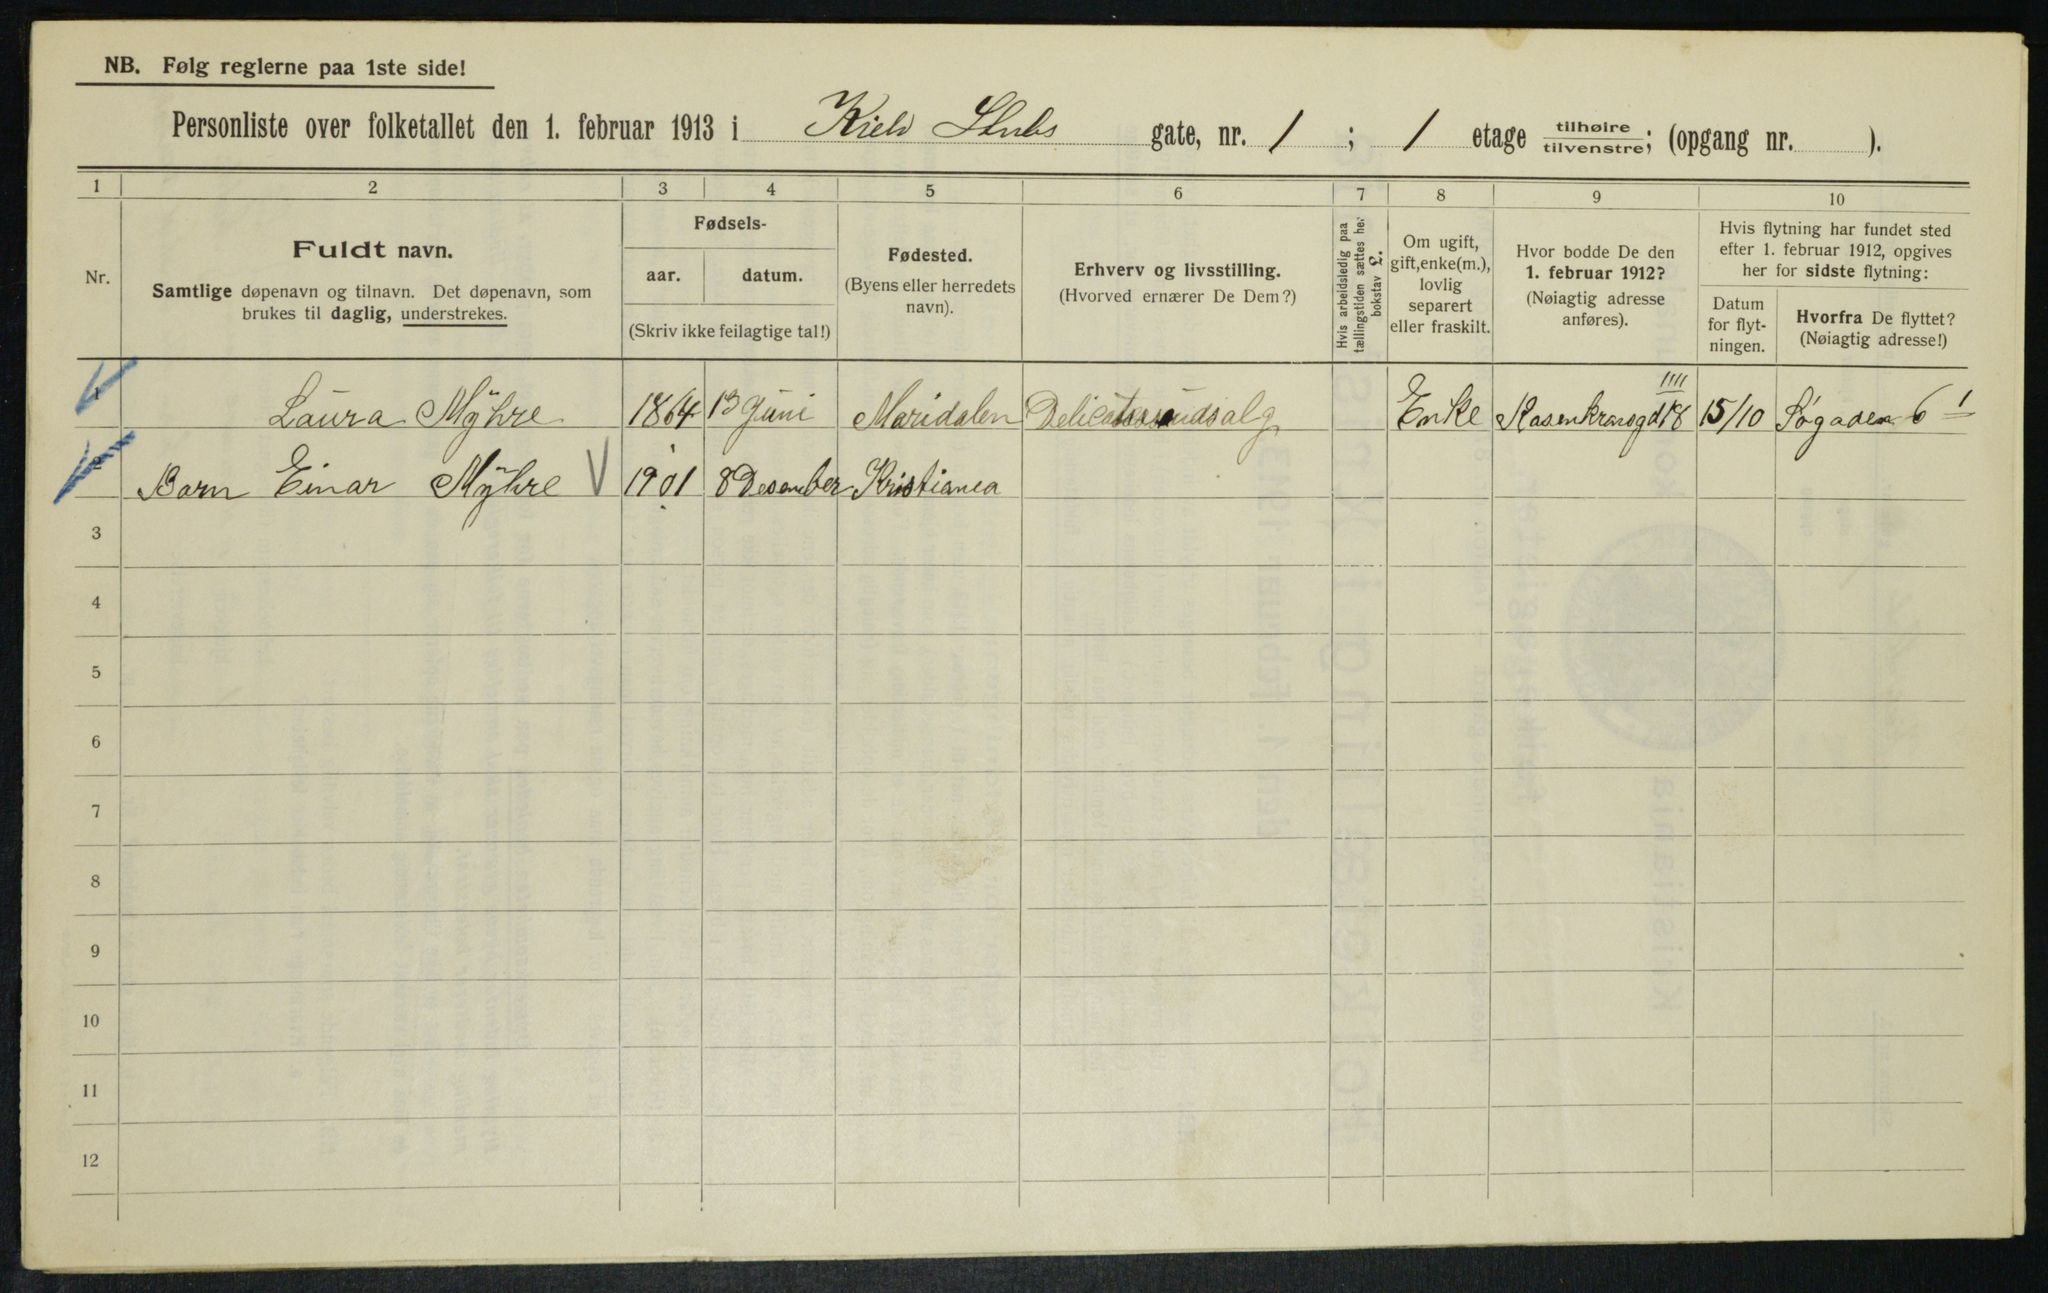 NB. Følg reglerne paa 1ste side!
Personliste over folketallet den 1. februar 1913 i Kield Stubs gate, nr. 1 ; 1 etage tilhøire/tilvenstre; (opgang nr. ).
1 2 3 4 5 6 7 8 9 10
Nr.
Fuldt navn.
Samtlige døpenavn og tilnavn. Det døpenavn, som
brukes til daglig, understrekes.
Fødsels-
aar. datum.
(Skriv ikke feilagtige tal!)
Fødested.
(Byens eller herredets
navn).
Erhverv og livsstilling.
(Hvorved ernærer De Dem?)
Hvis arbeidsledig paa
tællingstiden sættes her
bokstav
Om ugift,
gift, enke(m.),
lovlig
separert
eller fraskilt.
Hvor bodde De den
1. februar 1912?
(Nøiagtig adresse
anføres).
Hvis flytning har fundet sted
efter 1. februar 1912, opgives
her for sidste flytning:
Datum
for flyt-
ningen.
Hvorfra De flyttet?
(Nøiagtig adresse!)
1 Laura Mÿhre 1864 13 Juni Maridalen Enke 15/10 Søgaden 6 1
2 Barn Einar Mÿhre 1901 8 Desember Kristiania
3
4
5
6
7
8
9
10
11
12